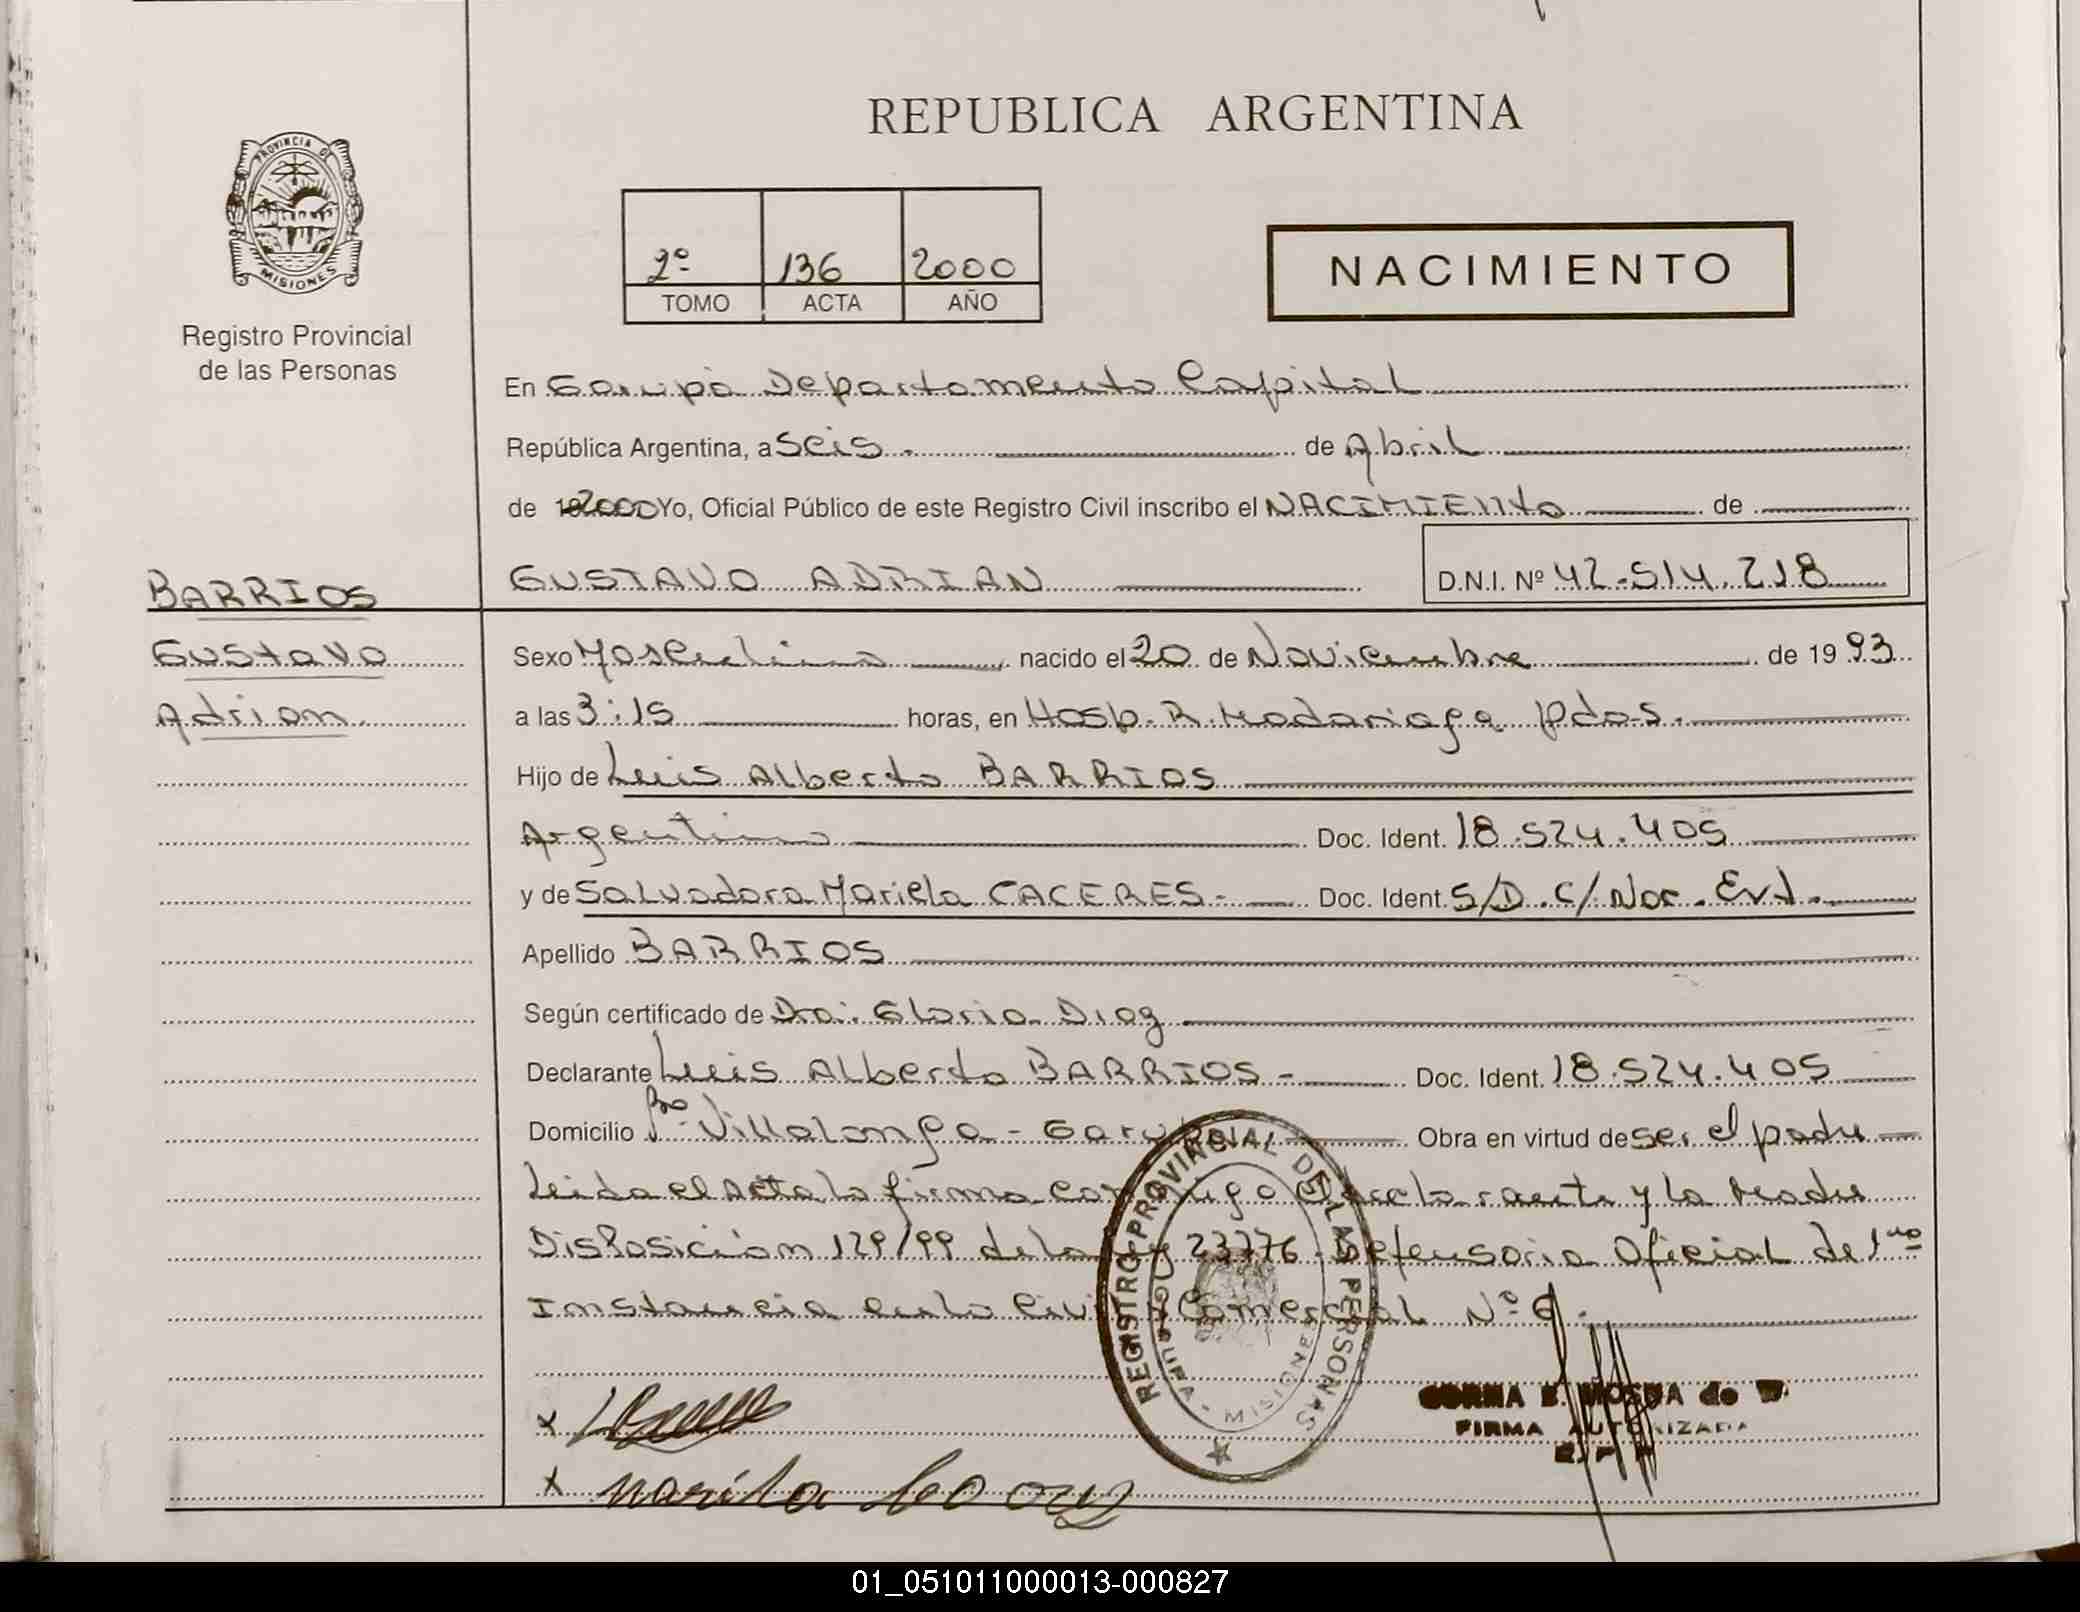 REPUBLICA ARGENTINA
PROVINCIA DE
MISIONES
Registro Provincial
de las Personas
2º 136 2000
TOMO ACTA AÑO
NACIMIENTO
En Garupá Departamento Capital
República Argentina, a Seis.- de Abril
de 192000 Yo, Oficial Público de este Registro Civil inscribo el NACIMIENTO de
GUSTAVO ADRIAN
D.N.I. Nº 42.514.218
BARRIOS
Gustavo
Adrian.
Sexo Masculino nacido el 20 de Noviembre de 1993
a las 3:15 horas, en Hosp. R. Madariaga Pdas.
Hijo de Luis Alberto BARRIOS
Argentino Doc. Ident. 18.524.405
y de Salvadora Mariela CACERES.- Doc. Ident. S/D. C/ Noc. Evt.
Apellido BARRIOS
Según certificado de Dra. Gloria Diaz
Declarante Luis Alberto BARRIOS - Doc. Ident. 18.524.405
Domicilio Bº Villalonga - Garupá Obra en virtud de ser el padre
Leida el Acta la firma conmigo el declarante y la Madre
Disposición 129/99 de la Ley 23776 Defensoria Oficial de 1ra
Instancia en lo Civil Comercial Nº 6.
REGISTRO PROVINCIAL DE LAS PERSONAS
GARUPA - MISIONES
x
x
FIRMA AUTORIZADA
01_051011000013-000827